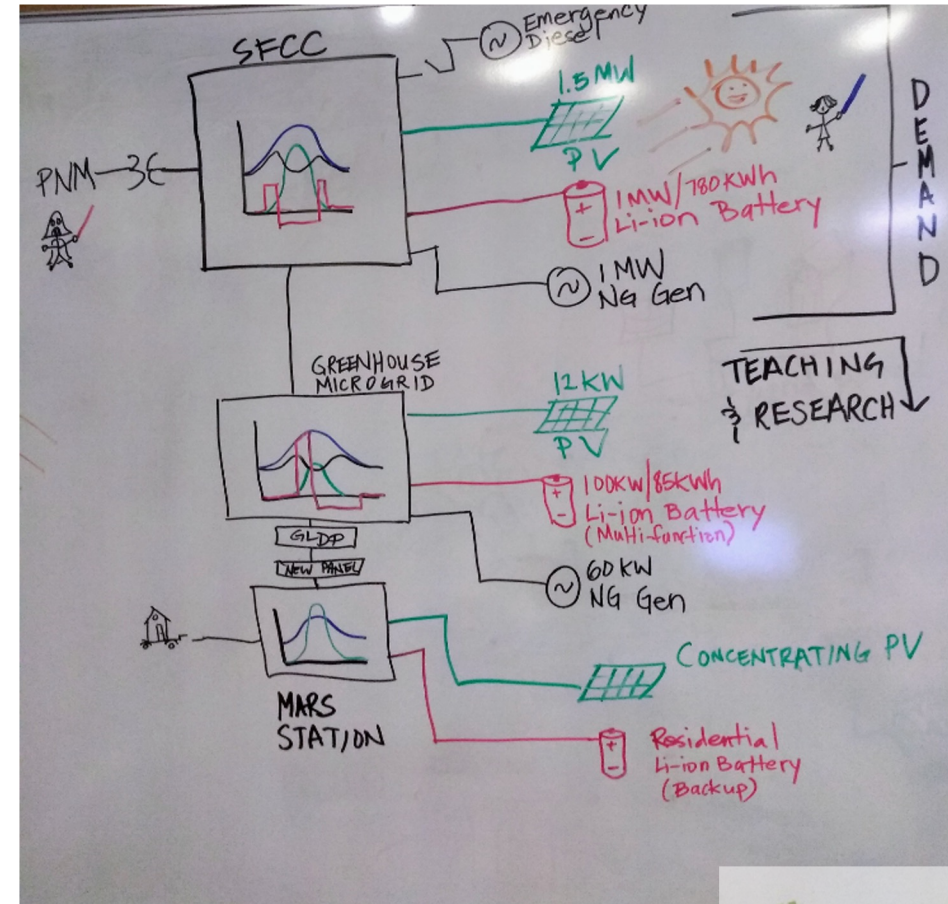 SFCC
Emergency
Diesel
1.5 MW
PV
PNM
1MW/780KWh
Li-ion Battery
1 MW
NG Gen
DEMAND
GREENHOUSE
MICROGRID
12KW
PV
TEACHING
& RESEARCH
100KW/85KWh
Li-ion Battery
(Multi-function)
GLDP
NEW PANEL
60KW
NG Gen
CONCENTRATING PV
MARS
STATION
Residential
Li-ion Battery
(Backup)